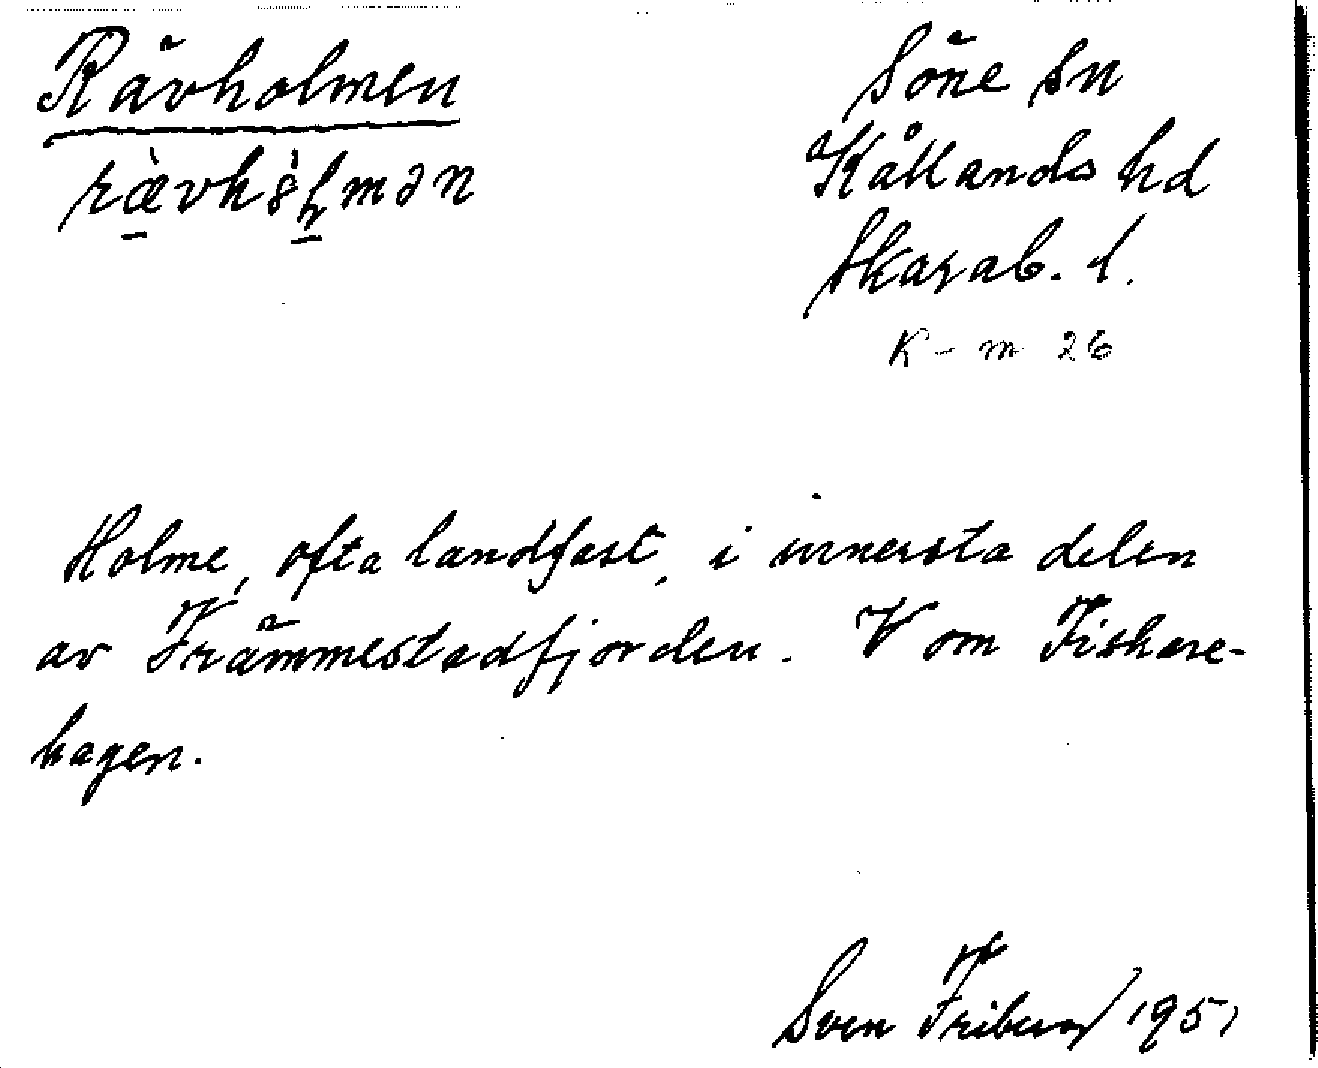 Rävholmen
Söne sn
Kållands hd
Skarab. l.
K - m 26
Holme, ofta landfast, i innersta delen
av Främmestadfjorden. V om Fiskare-
hagen.
Sven Friberg 1951